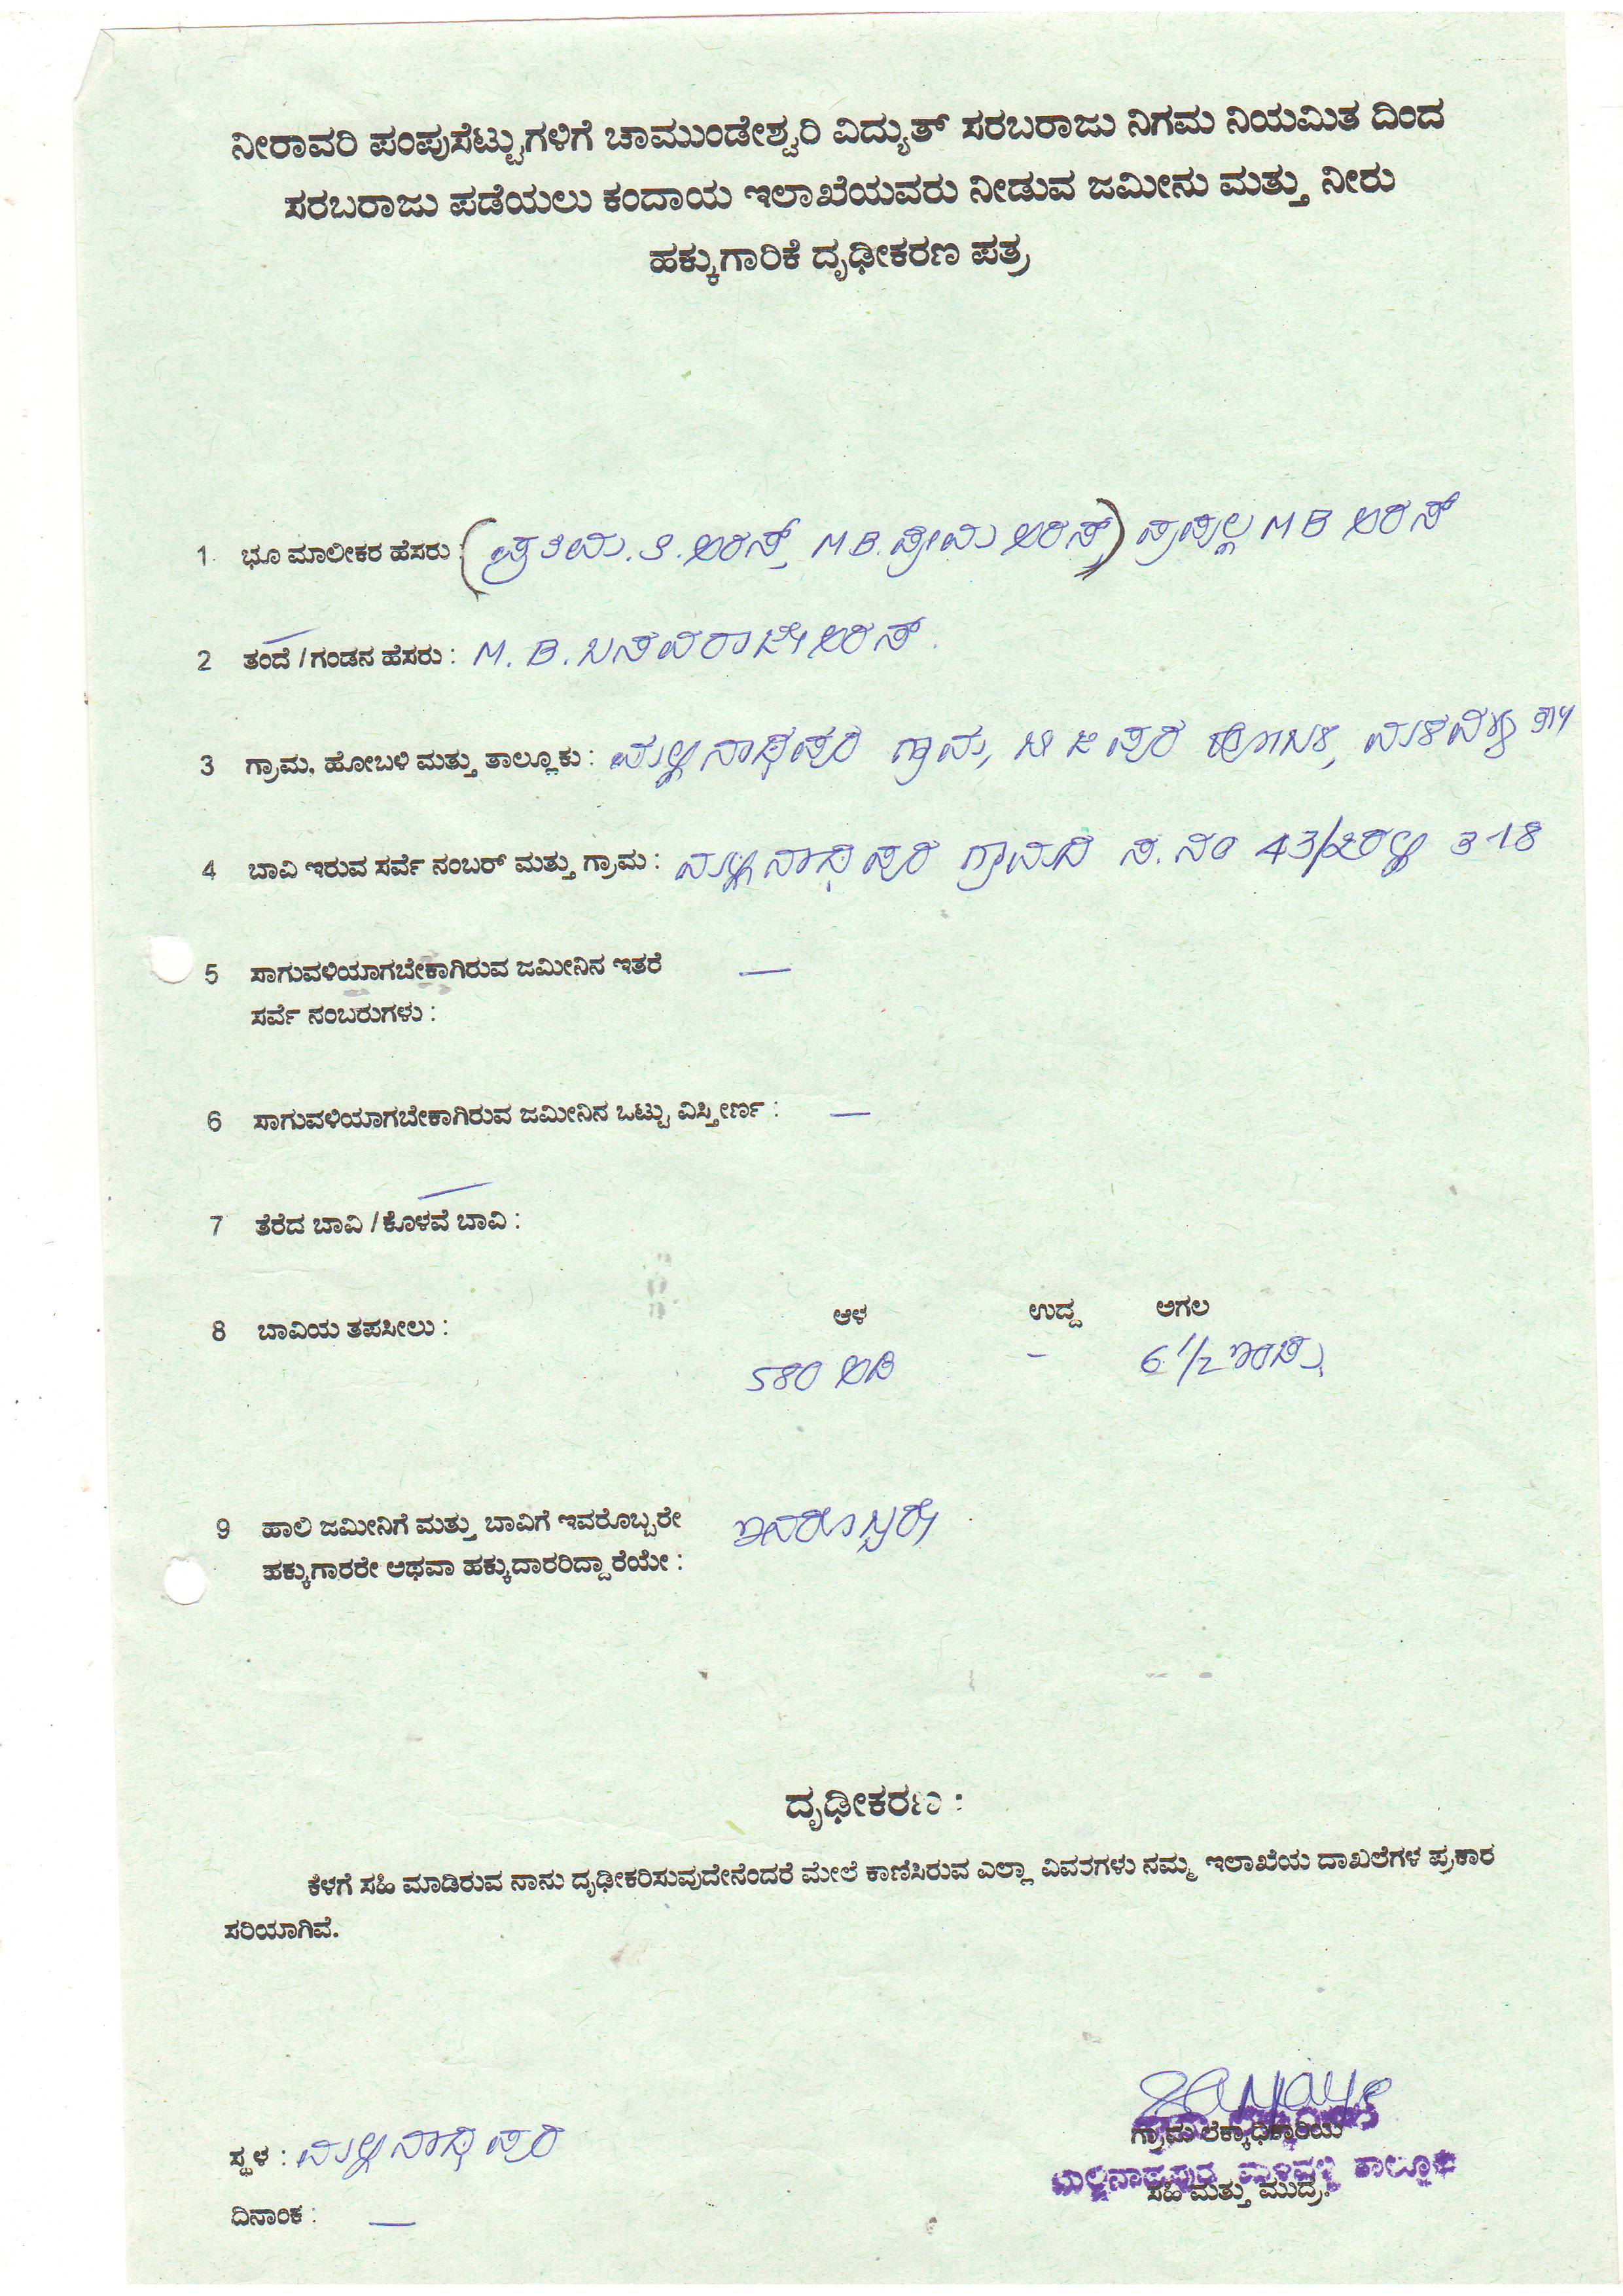 ನೀರಾವರಿ ಪಂಪುಸೆಟ್ಟುಗಳಿಗೆ ಚಾಮುಂಡೇಶ್ವರಿ ವಿದ್ಯುತ್ ಸರಬರಾಜು ನಿಗಮ ನಿಯಮಿತ ದಿಂದ
ಸರಬರಾಜು ಪಡೆಯಲು ಕಂದಾಯ ಇಲಾಖೆಯವರು ನೀಡುವ ಜಮೀನು ಮತ್ತು ನೀರು
ಹಕ್ಕುಗಾರಿಕೆ ದೃಢೀಕರಣ ಪತ್ರ
1. ಭೂ ಮಾಲೀಕರ ಹೆಸರು : (ಪ್ರತಿಮ. ತಿ. ಅರಸ್ M B. ಪ್ರೇಮ ಅರಸ್) ಪ್ರಪುಲ್ಲ M B ಅರಸ್
2 ತಂದೆ / ಗಂಡನ ಹೆಸರು : M. B. ಬಸವರಾಜೇ ಅರಸ್.
3 ಗ್ರಾಮ, ಹೋಬಳಿ ಮತ್ತು ತಾಲ್ಲೂಕು : ಮಲ್ಲಿನಾಥಪುರ ಗ್ರಾಮ, ಬಿ ಜಿ ಪುರ ಹೋಬಳಿ, ಮಳವಳ್ಳಿ ತಾ||
4 ಬಾವಿ ಇರುವ ಸರ್ವೆ ನಂಬರ್ ಮತ್ತು ಗ್ರಾಮ : ಮಲ್ಲಿನಾಥಪುರ ಗ್ರಾಮದ ಸ. ನಂ 43/ 3-18
5 ಸಾಗುವಳಿಯಾಗಬೇಕಾಗಿರುವ ಜಮೀನಿನ ಇತರೆ —
ಸರ್ವೆ ನಂಬರುಗಳು :
6 ಸಾಗುವಳಿಯಾಗಬೇಕಾಗಿರುವ ಜಮೀನಿನ ಒಟ್ಟು ವಿಸ್ತೀರ್ಣ : —
7 ತೆರೆದ ಬಾವಿ / ಕೊಳವೆ ಬಾವಿ :
8 ಬಾವಿಯ ತಪಸೀಲು : ಆಳ ಉದ್ದ ಅಗಲ
580 ಅಡಿ - 6 1/2 ಇಂಚು
9 ಹಾಲಿ ಜಮೀನಿಗೆ ಮತ್ತು ಬಾವಿಗೆ ಇವರೊಬ್ಬರೇ ಇವರೊಬ್ಬರೇ
ಹಕ್ಕುಗಾರರೇ ಅಥವಾ ಹಕ್ಕುದಾರರಿದ್ದಾರೆಯೇ :
ದೃಢೀಕರಣ :
ಕೆಳಗೆ ಸಹಿ ಮಾಡಿರುವ ನಾನು ದೃಢೀಕರಿಸುವುದೇನೆಂದರೆ ಮೇಲೆ ಕಾಣಿಸಿರುವ ಎಲ್ಲಾ ವಿವರಗಳು ನಮ್ಮ ಇಲಾಖೆಯ ದಾಖಲೆಗಳ ಪ್ರಕಾರ
ಸರಿಯಾಗಿವೆ.
ಸ್ಥಳ : ಮಲ್ಲಿನಾಥಪುರ
ಗ್ರಾಮ ಲೆಕ್ಕಾಧಿಕಾರಿಯ
ಮಲ್ಲಿನಾಥಪುರ ಮಳವಳ್ಳಿ ತಾಲ್ಲೂಕು
ಸಹಿ ಮತ್ತು ಮುದ್ರೆ.
ದಿನಾಂಕ : —